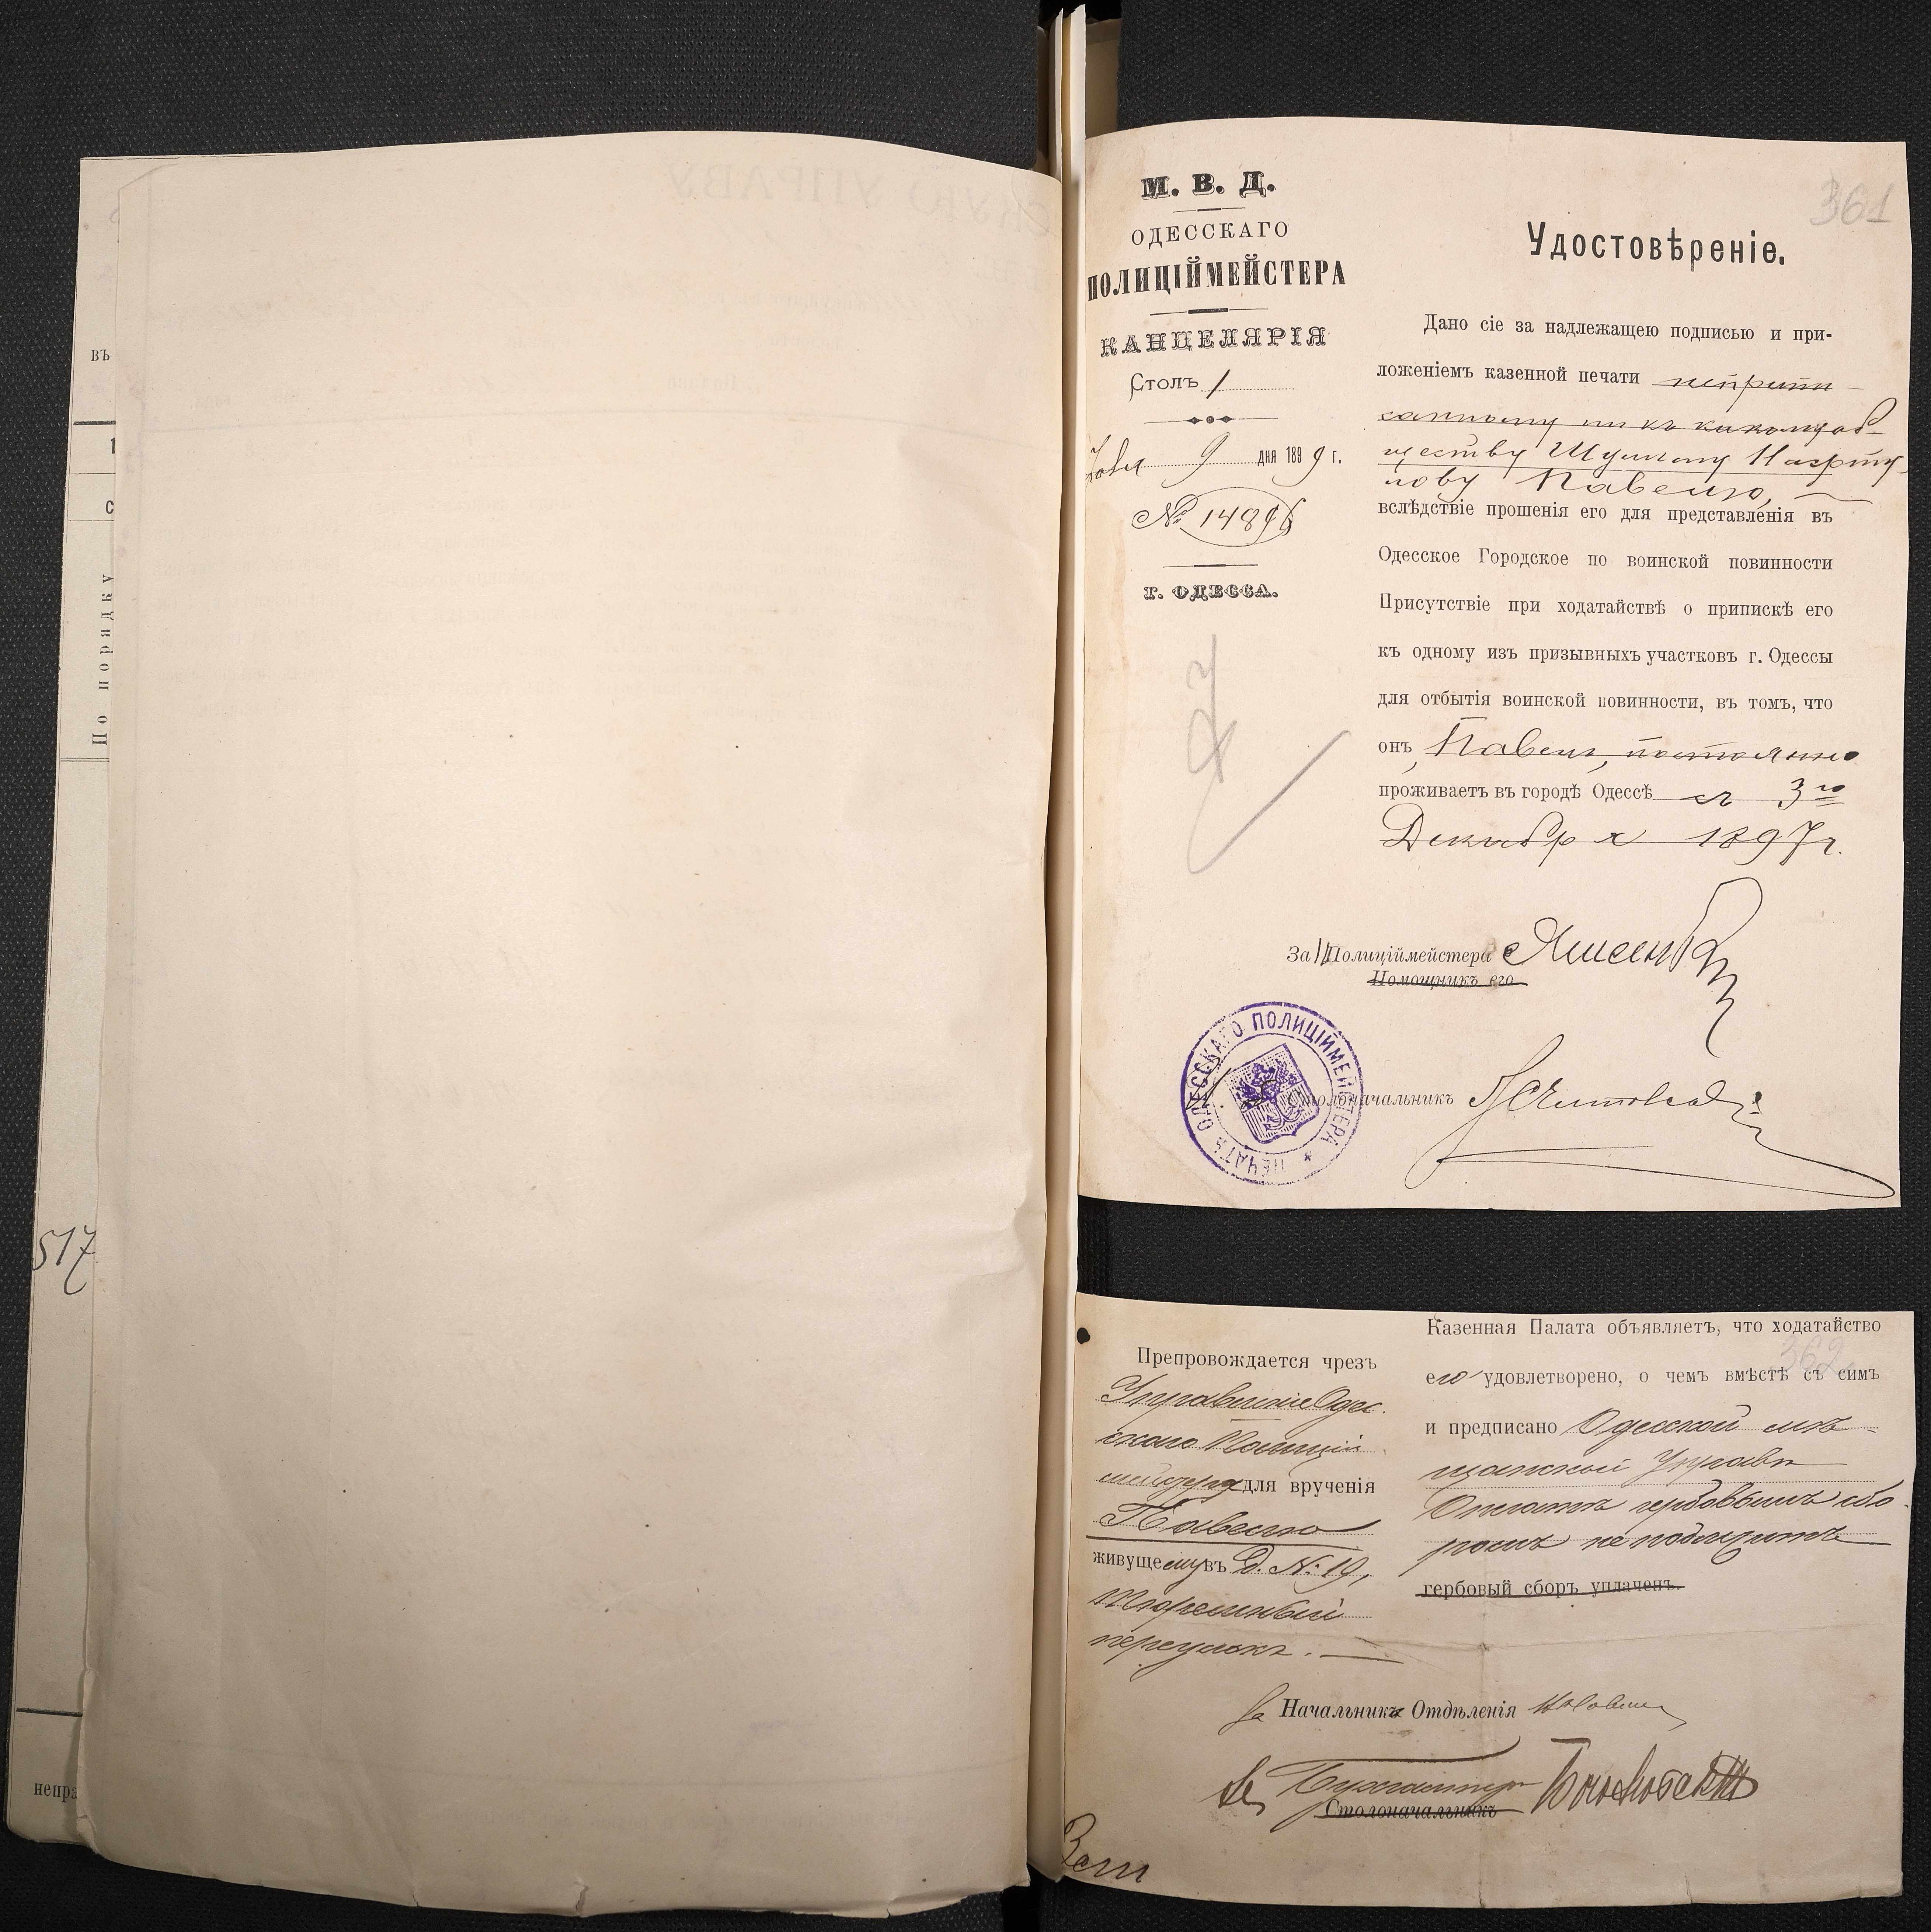 въ
1
С
По порядку
517
непра
361
М. В. Д.
ОДЕССКАГО
ПОЛИЦІЙМЕЙСТЕРА
КАНЦЕЛЯРІЯ
Столъ 1
9 дня 1899 г.
№ 14896
Г. ОДЕССА.
Удостовѣреніе.
Дано сіе за надлежащею подписью и при-
ложеніемъ казенной печати неприпи
санному ни къ какому об-
ществу Шулиму
Павелю,
вслѣдствіе прошенія его для представленія въ
Одесское Городское по воинской повинности
Присутствіе при ходатайствѣ о припискѣ его
къ одному изъ призывныхъ участковъ г. Одессы
для отбытія воинской повинности, въ томъ, что
онъ, Павель, постоянно
проживаетъ въ городѣ Одессѣ съ 3го
Декабря 1897 г.
За Полиціймейстера
Помощникъ его
Столоначальникъ
ПЕЧАТЬ ОДЕССКАГО ПОЛИЦІЙМЕЙСТЕРА
362
Препровождается чрезъ
Управленіе Одес.
скаго Полицій
мейстера для врученія
Павелю
живущему въ д. № 19,
Тюремный
переулокъ.
Казенная Палата объявляетъ, что ходатайство
его удовлетворено, о чемъ вмѣстѣ съ симъ
и предписано Одесской мѣ
щанской Управѣ
Оплатѣ гербовымъ сбо
ромъ не подлежитъ
гербовый сборъ уплаченъ.
За Начальника Отдѣленія
Бухгалтеръ
Столоначальникъ